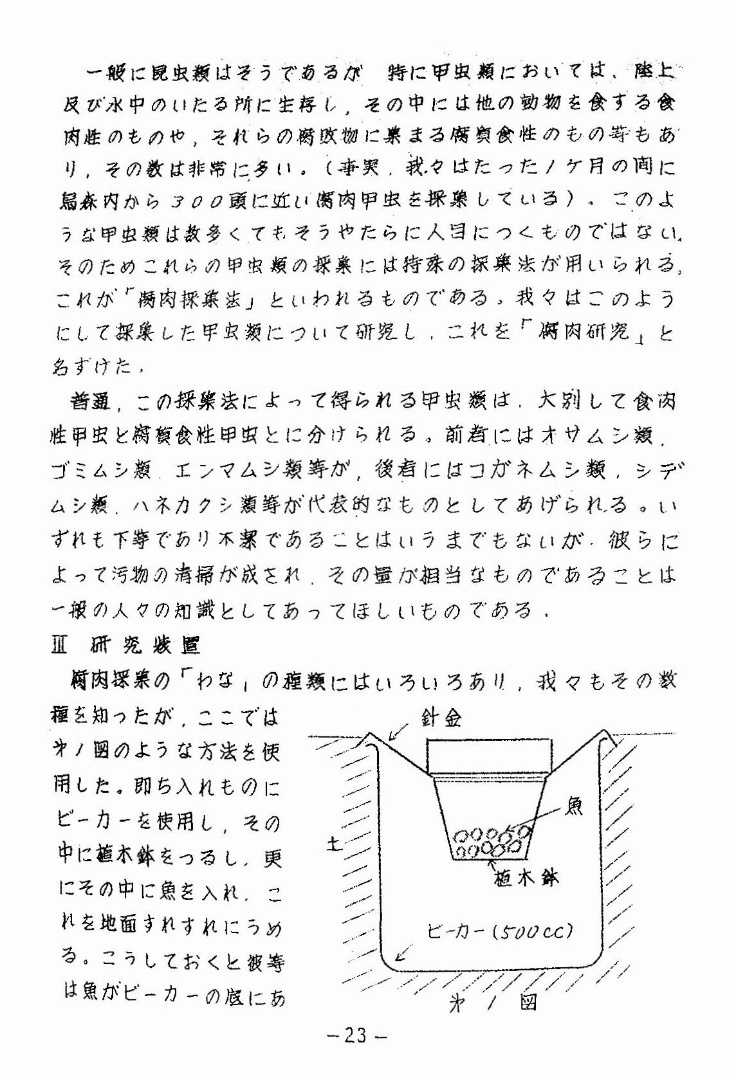 一般に昆虫類はそうであるが 特に甲虫類においては、陸上
及び水中のいたる所に生存し、その中には他の動物を食する食
肉性のものや、それらの腐敗物に集まる腐食性のもの等もあ
り、その数は非常に多い。(事実、我々はたった1ケ月の間に
森内から300頭に近い腐肉甲虫を採集している)。このよ
うな甲虫類は数多くてもそうやたらに人目につくものではない。
そのためこれらの甲虫類の採集には特殊の採集法が用いられる。
これが「腐肉採集法」といわれるものである。我々はこのよう
にして採集した甲虫類について研究し、これを「腐肉研究」と
名ずけた。
普通、この採集法によって得られる甲虫類は、大別して食肉
性甲虫と腐食性甲虫とに分けられる。前者にはオサムシ類、
ゴミムシ類、エンマムシ類等が、後者にはコガネムシ類、シデ
ムシ類、ハネカクシ類等が代表的なものとしてあげられる。い
ずれも下等であり不潔であることはいうまでもないが、彼らに
よって汚物の清掃が成され、その量が相当なものであることは
一般の人々の知識としてあってほしいものである。
Ⅲ 研究装置
腐肉採集の「わな」の種類にはいろいろあり、我々もその数
種を知ったが、ここでは
㐧1図のような方法を使
用した。即ち入れものに
ビーカーを使用し、その
中に植木鉢をつるし、更
にその中に魚を入れ、こ
れを地面すれすれにうめ
る。こうしておくと彼等
は魚がビーカーの底にあ
針金
魚
土
植木鉢
ビーカー(500cc)
㐧1図
-23-